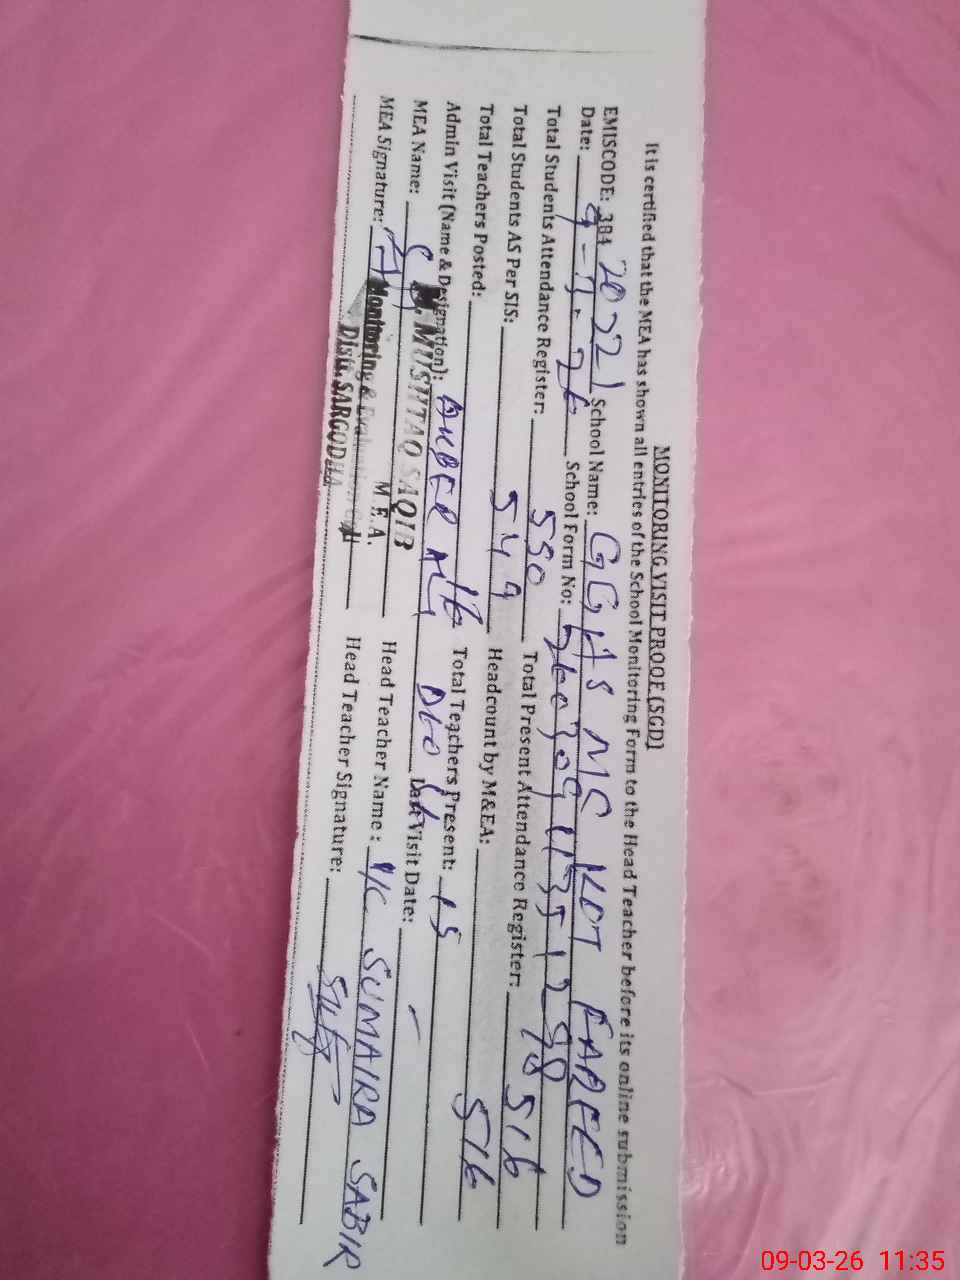 MONITORING VISIT PROOF (SGD)
It is certified that the MEA has shown all entries of the School Monitoring Form to the Head Teacher before its online submission
EMISCODE: 384 20221 School Name: GGHS MC KOT FAREED
Date: 9-3-26 School Form No:
Total Students Attendance Register: 550 Total Present Attendance Register: 516
Total Students AS Per SIS: 549 Headcount by M&EA: 516
Total Teachers Posted: 16 Total Teachers Present: 15
Admin Visit (Name & Designation): ALI Visit Date: -
MEA Name: M. MUSHTAQ SAQIB Head Teacher Name: I/C SUMAIRA SABIR
M.E.A.
MEA Signature: Head Teacher Signature:
Monitoring & Evaluation Cell
Distt. SARGODHA
09-03-26 11:35